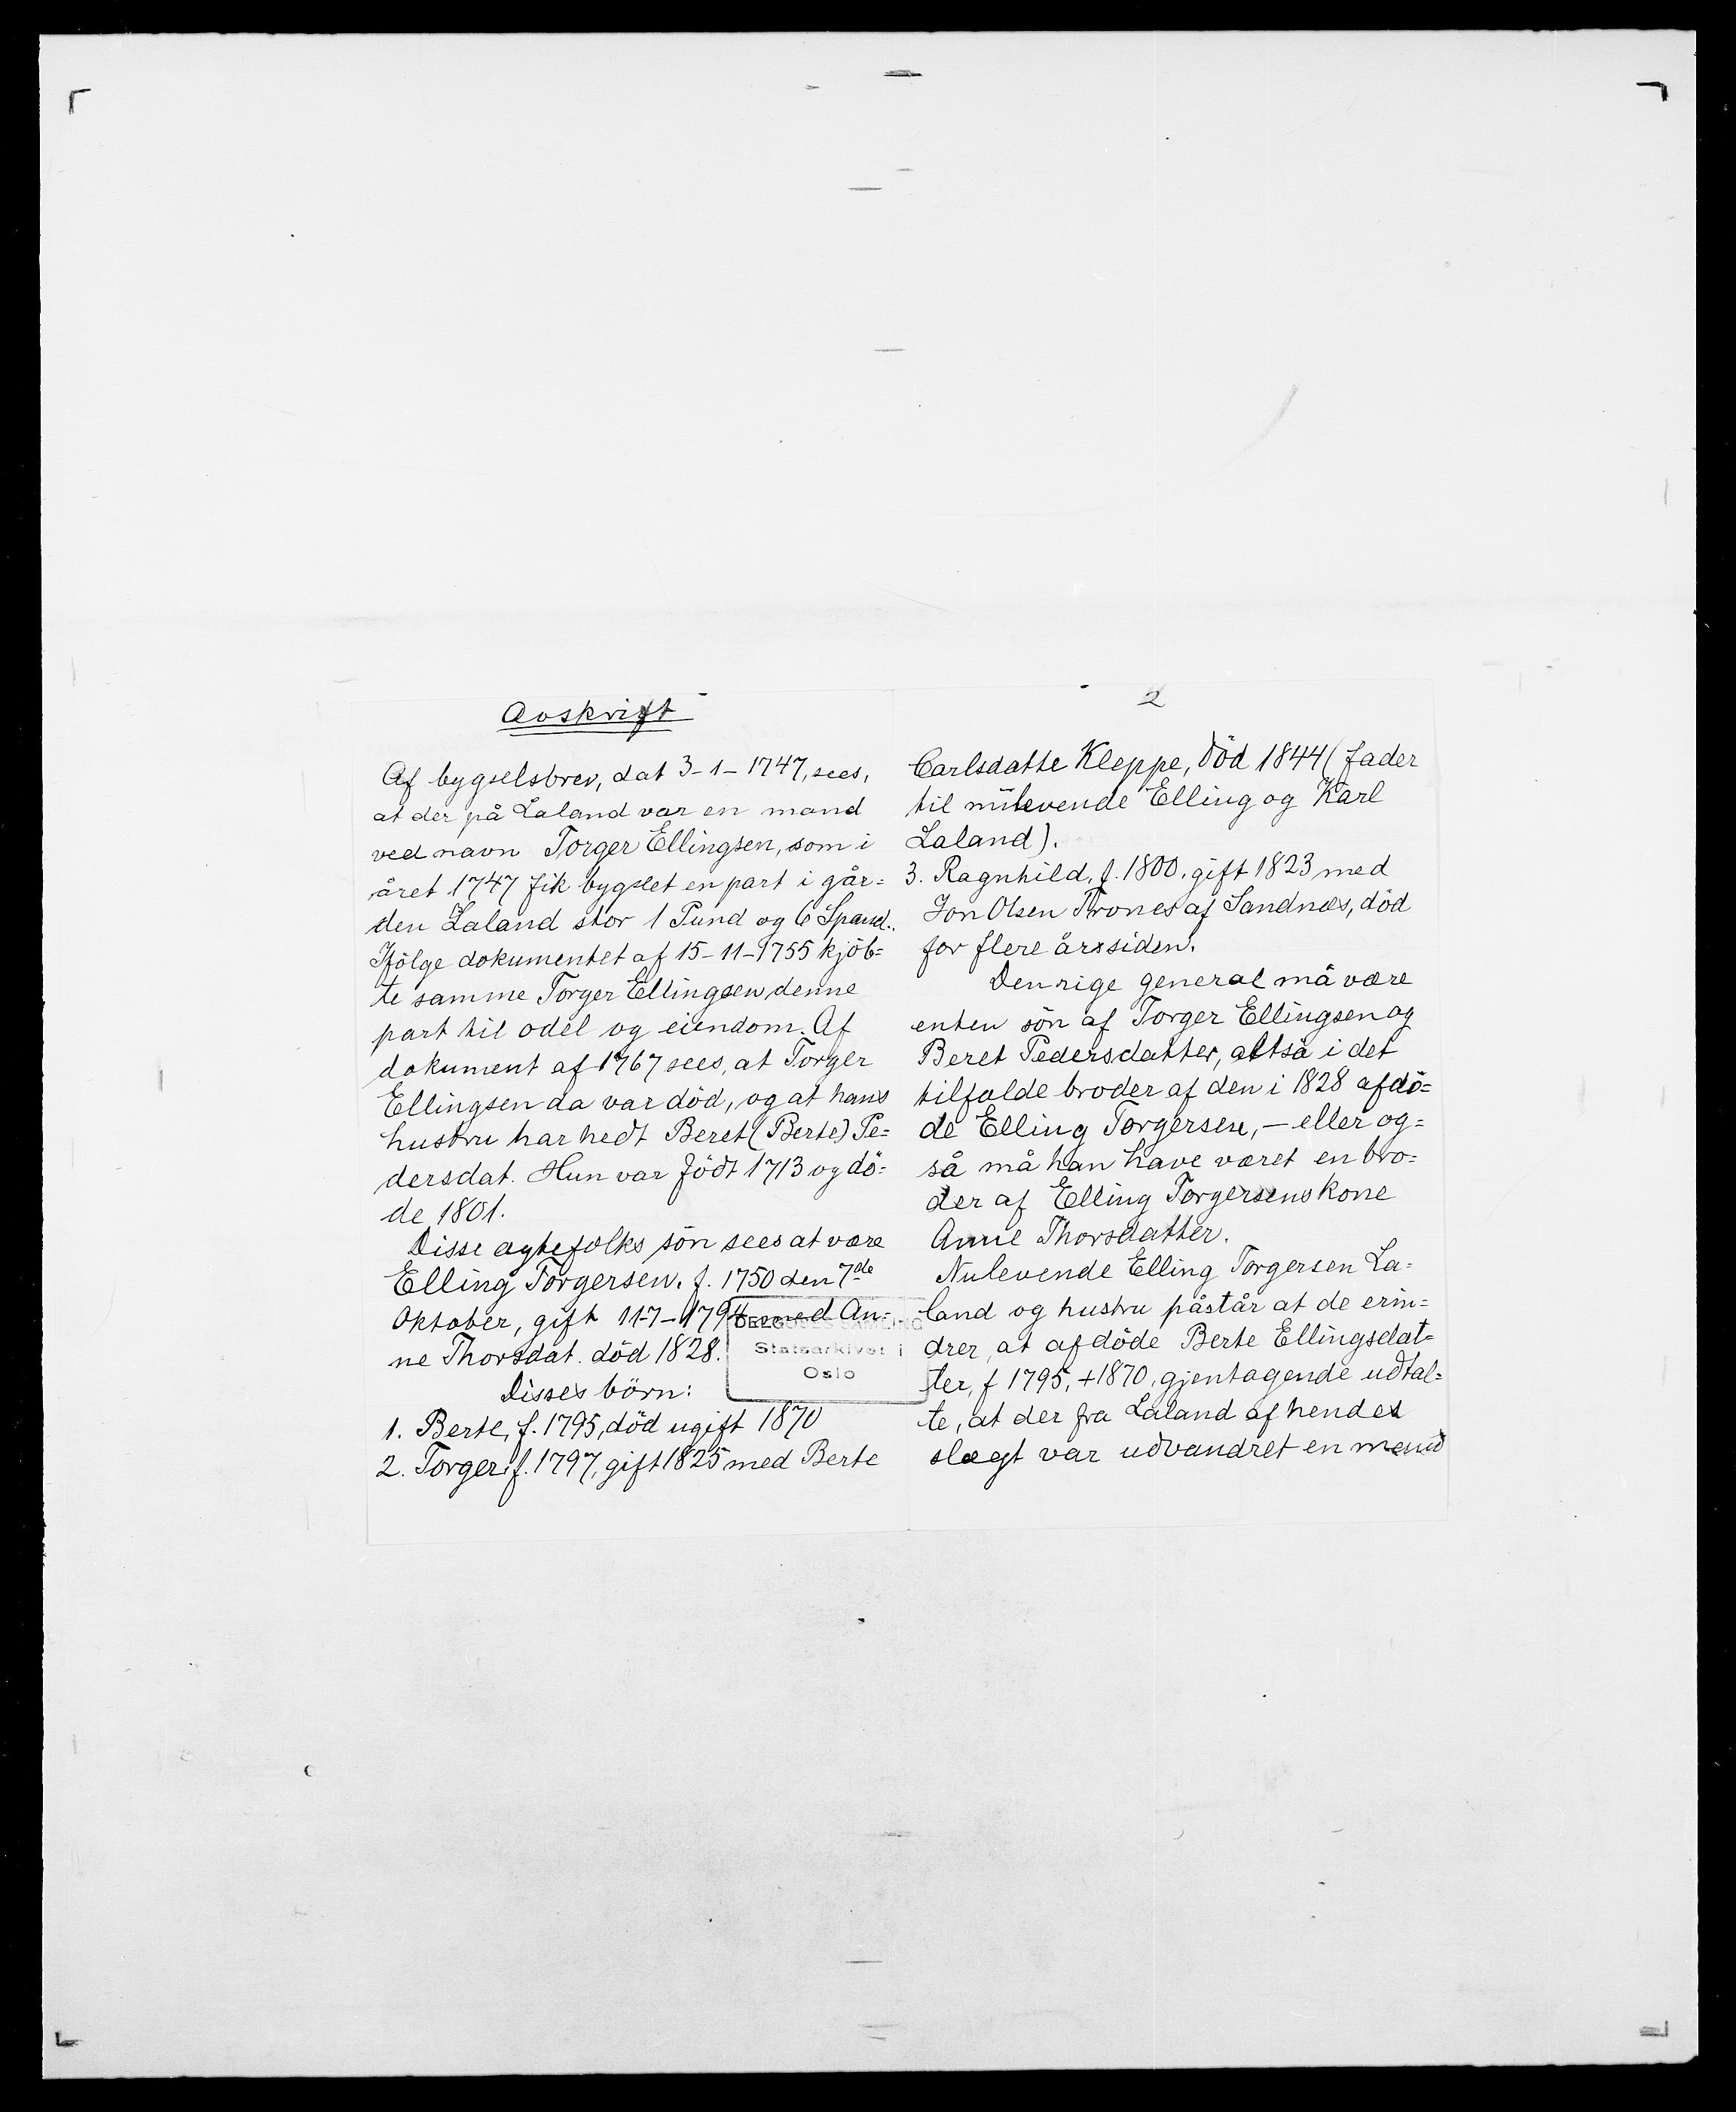 Avskrift
Af bygselsbrev, dat 3-1-1747, sees,
at der på Laland var en mand
ved navn Torger Ellingsen, som i
året 1747 fik bygslet en part i går=
den Laland stor 1 Pund og 6 Spand.
Ifölge dokumentet af 15-11-1755 kjöb=
te samme Torger Ellingsen denne
part til odel og eiendom. Af
dokument af 1767 sees, at Torger
Ellingsen da var död, og at hans
hustru har hedt Beret (Berte) Pe=
dersdat. Hun var födt 1713 og dö=
de 1801.
Disse ægtefolks sön sees at være
Elling Torgersen. f. 1750 den 7de
Oktober, gift 11-7-1794 med An=
ne Thorsdat. död 1828.
Disses börn:
1. Berte, f. 1795, död ugift 1870
2. Torger f. 1797, gift 1825 med Berte
DELGOBES SAMLING
Statsarkivet i
Oslo
2
Carlsdatte Kleppe, död 1844 (fader
til nülevende Elling og Karl
Laland).
3. Ragnhild, f. 1800, gift 1823 med
Jon Olsen Trones af Sandnæs, död
for flere årssiden.
Den rige general må være
enten sön af Torger Ellingsen og
Beret Pedersdatter, altså i det
tilfælde broder af den i 1828 afdö=
de Elling Torgersen, — eller og=
så må han have været en bro=
der af Elling Torgersens kone
Anne Thorsdatter.
Nulevende Elling Torgersen La=
land og hustru påstår at de erin=
drer, at afdöde Berte Ellingsdat=
ter, f 1795, +1870, gjentagende udtal=
te, at der fra Laland af hendes
slægt var udvandret en mand